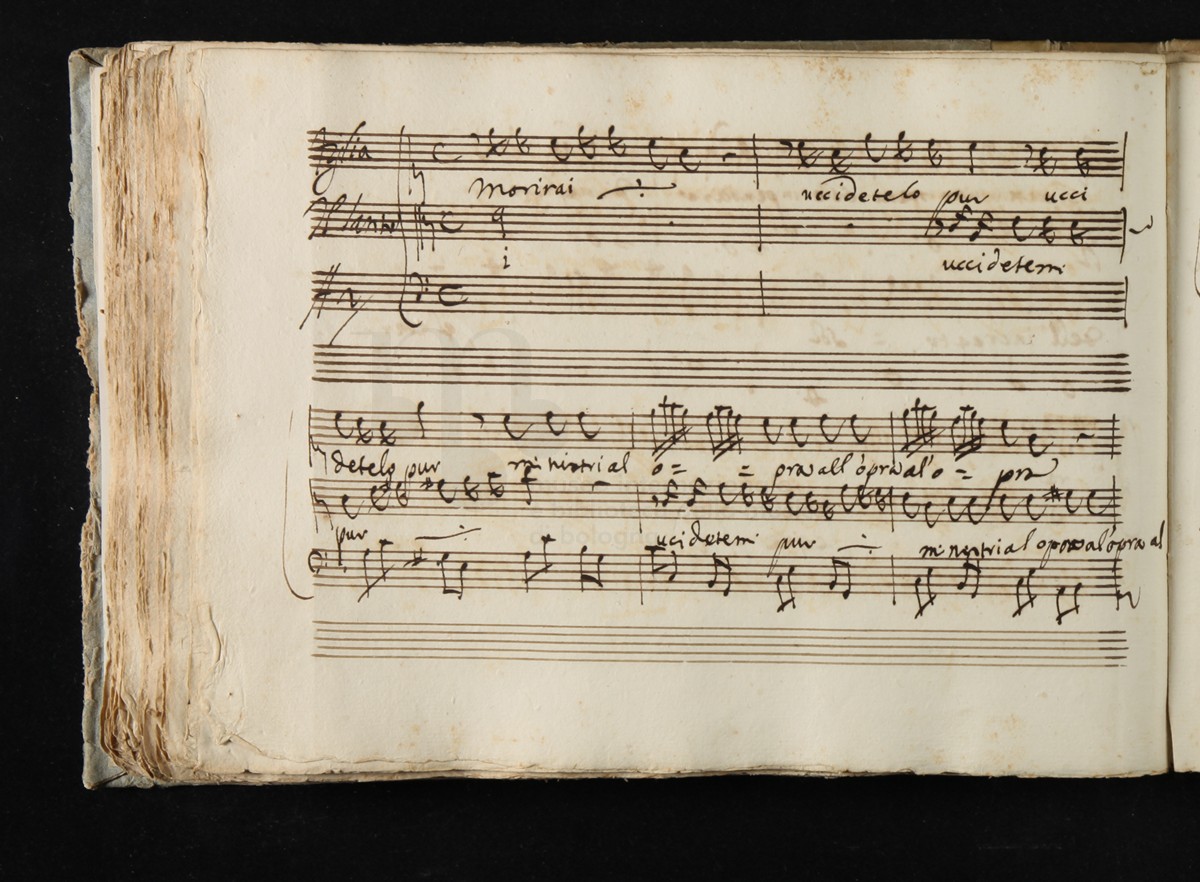 Morirai
uccidetelo pur ucci
i
uccidetemi
detelo pur ministri al o= = pra all'opra al'o= pra
pur uccidetemi pur ministri al opra al'opra al